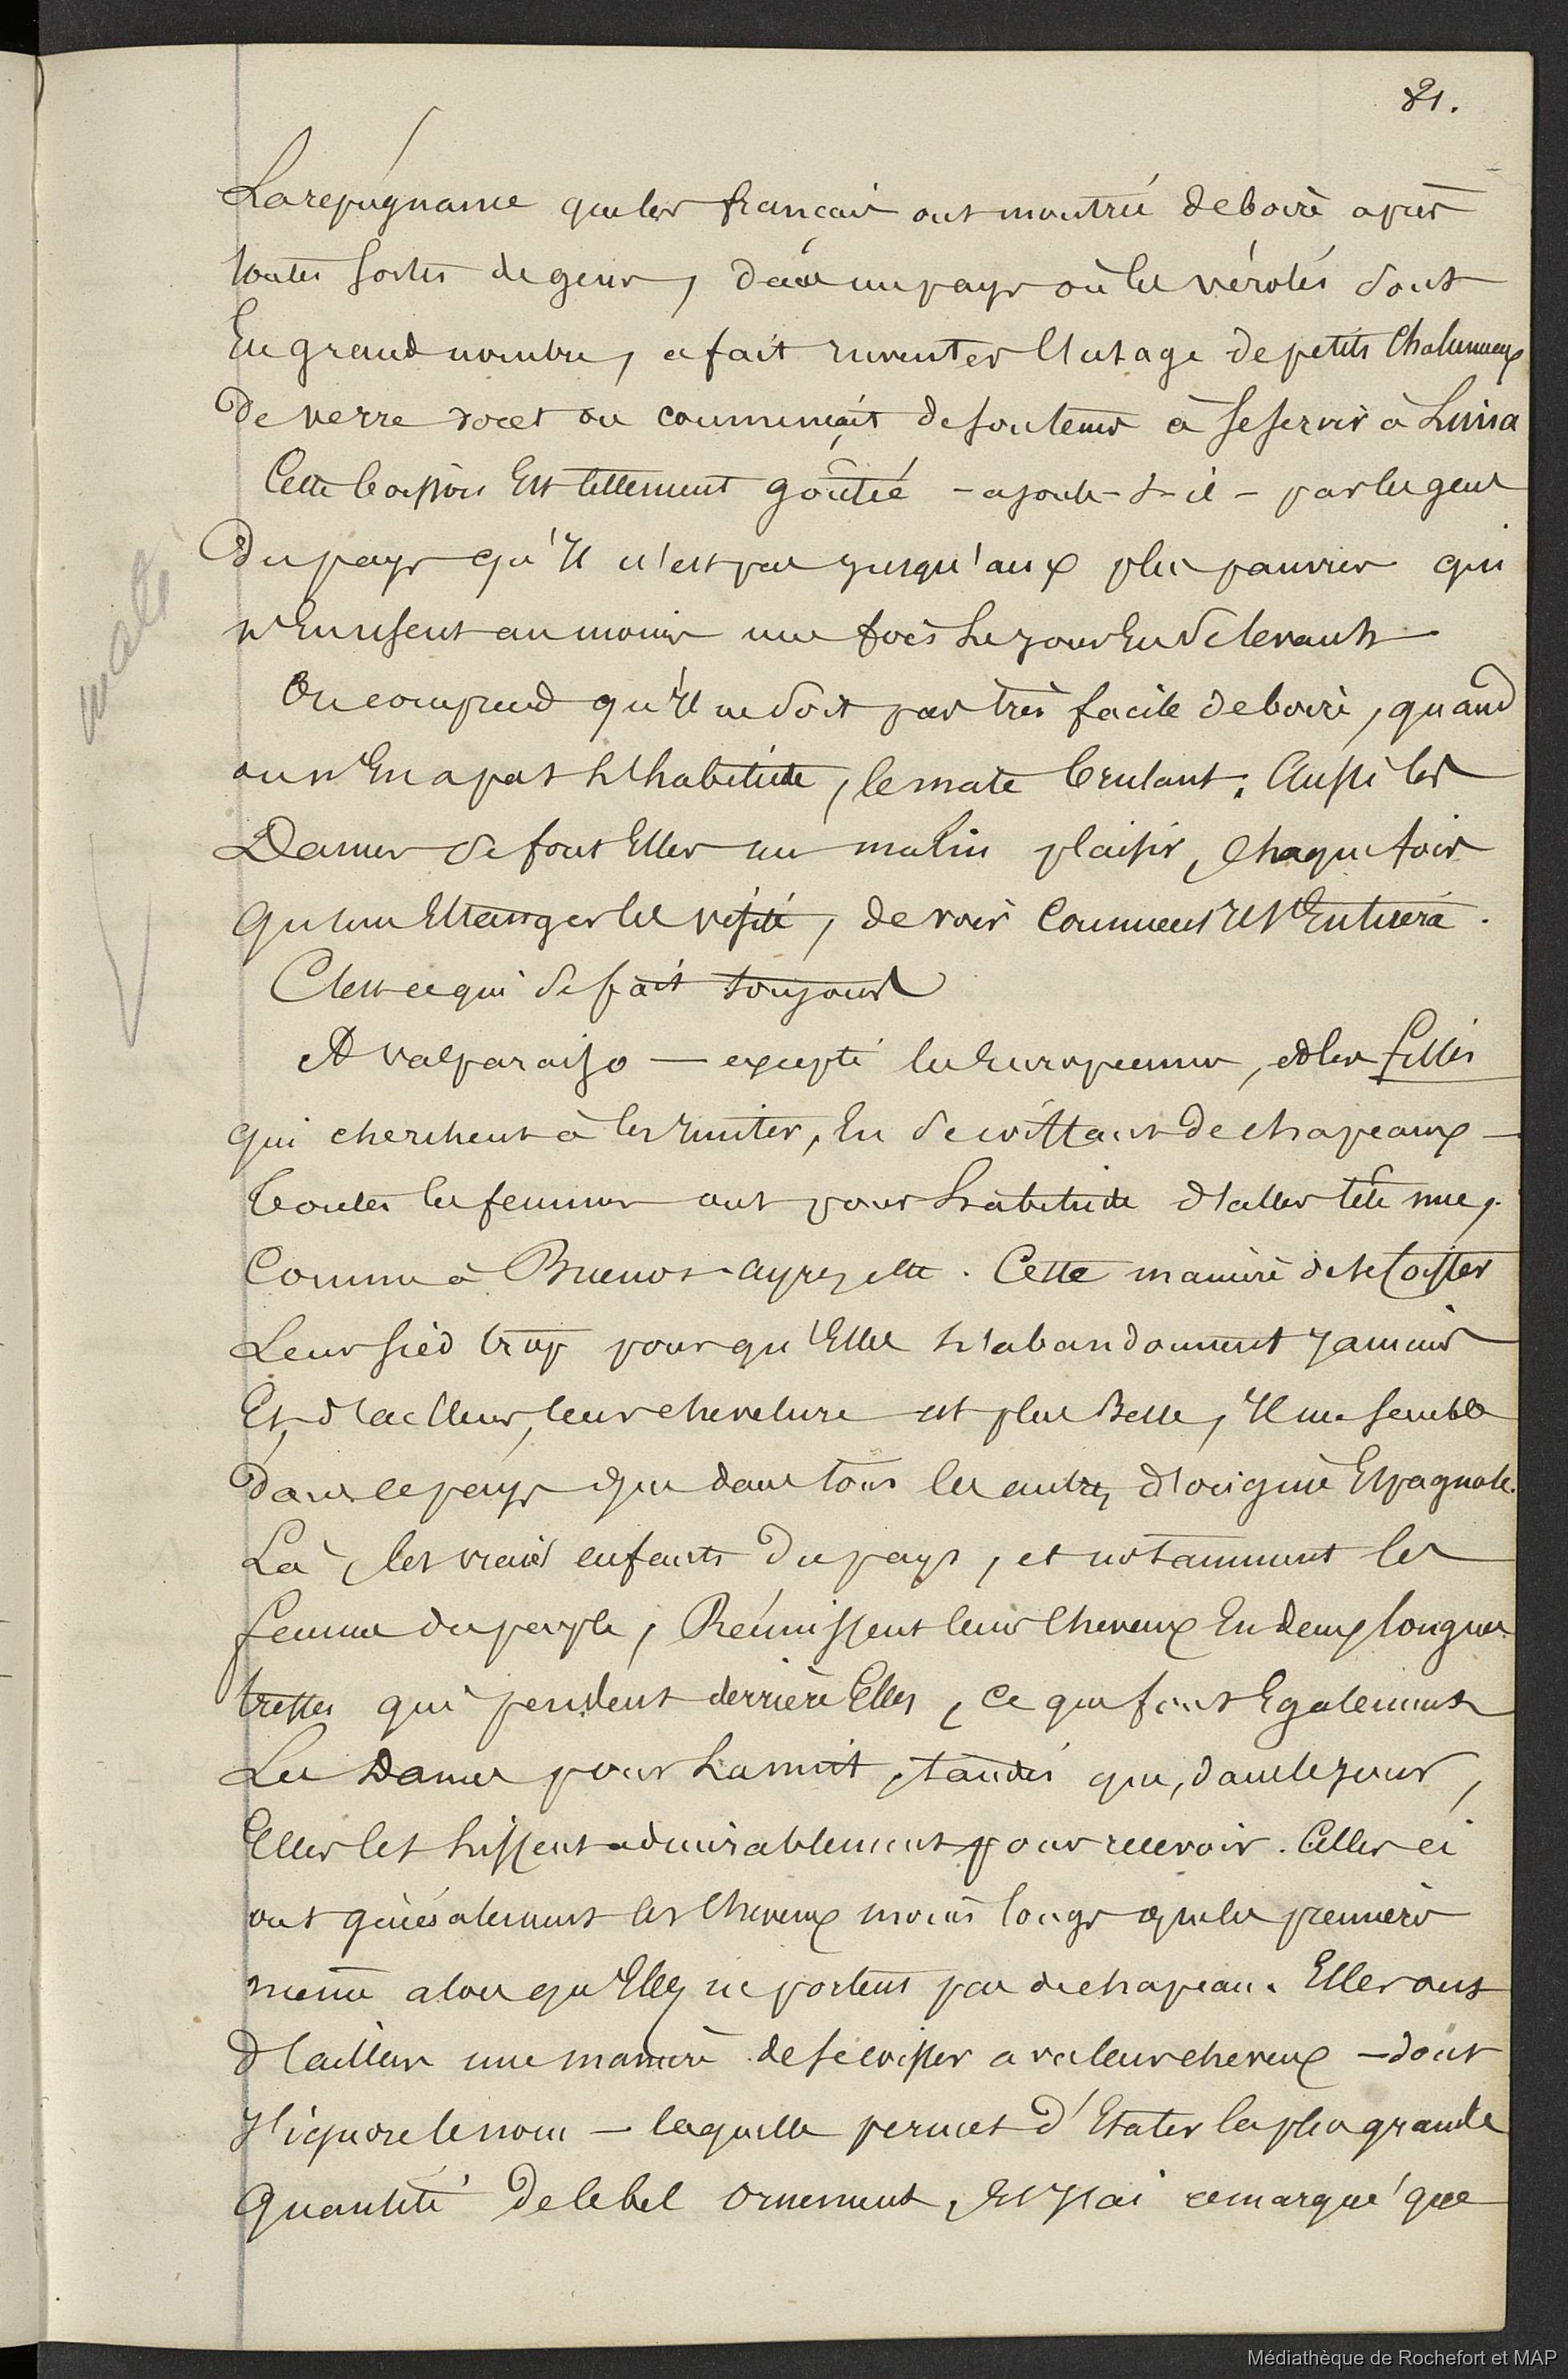 81.
La répugnance que les français ont montrée de boire après
toutes sortes de gens, dans un pays où les vérolés sont
En grand nombre, a fait inventer l'usage de petits Chalumeaux
De verre dont on commençait de son temps à se servir à Lima
Cette boisson Est tellement goûtée - ajoute-t-il - par les gens
Du pays qu'Il n'est pas jusqu'aux plus pauvres qui
n'En usent au moins une fois le jour En se levant
On comprend qu'Il ne soit pas très facile de boire, quand
on n'En a pas l'habitude, le maté brulant. Aussi les
Dames se font Elles un malin plaisir, Chaque fois
qu'un Etranger les visite, de voir Comment Il s'En tirera.
C'est ce qui se fait toujours
A valparaiso — excepté les Européennes, et les filles
qui cherchent à les imiter, En se coiffant de chapeaux —
toutes les femmes ont pour habitude d'aller tête nue,
Comme à Buenos-ayres etc. Cette manière de se Coiffer
Leur sied trop pour qu'Elles l'abandonnent jamais
Et, d'ailleurs, leur chevelure est plus Belle, Il me semble
dans ce pays que dans tous les autres d'origine Espagnole.
Là, les vrais enfants du pays, et notamment les
femmes du peuple, Réunissent leurs Cheveux En deux longues
tresses qui pendent derrière Elles, ce que font Egalement
Les Dames pour La nuit, tandis que, dans le jour,
Elles les lissent admirablement pour recevoir. Celles ci
ont généralement les Cheveux moins longs que les premières
même alors qu'Elles ne portent pas de chapeau. Elles ont
d'ailleurs une manière de se coiffer avec leurs cheveux — dont
J'ignore le nom — laquelle permet d'Etaler la plus grande
quantité de ce bel ornement, Et J'ai remarqué que
maté
Médiathèque de Rochefort et MAP